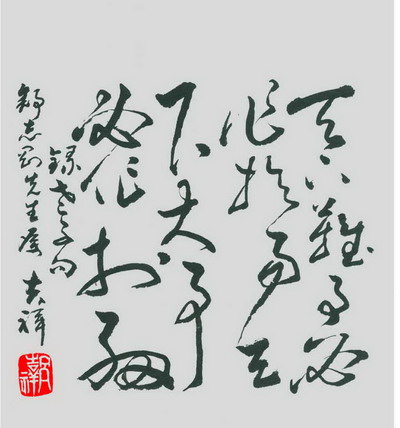 天下難事必
作於易天
下大事
必作於細
錄老子句
志剛先生屬 吉祥